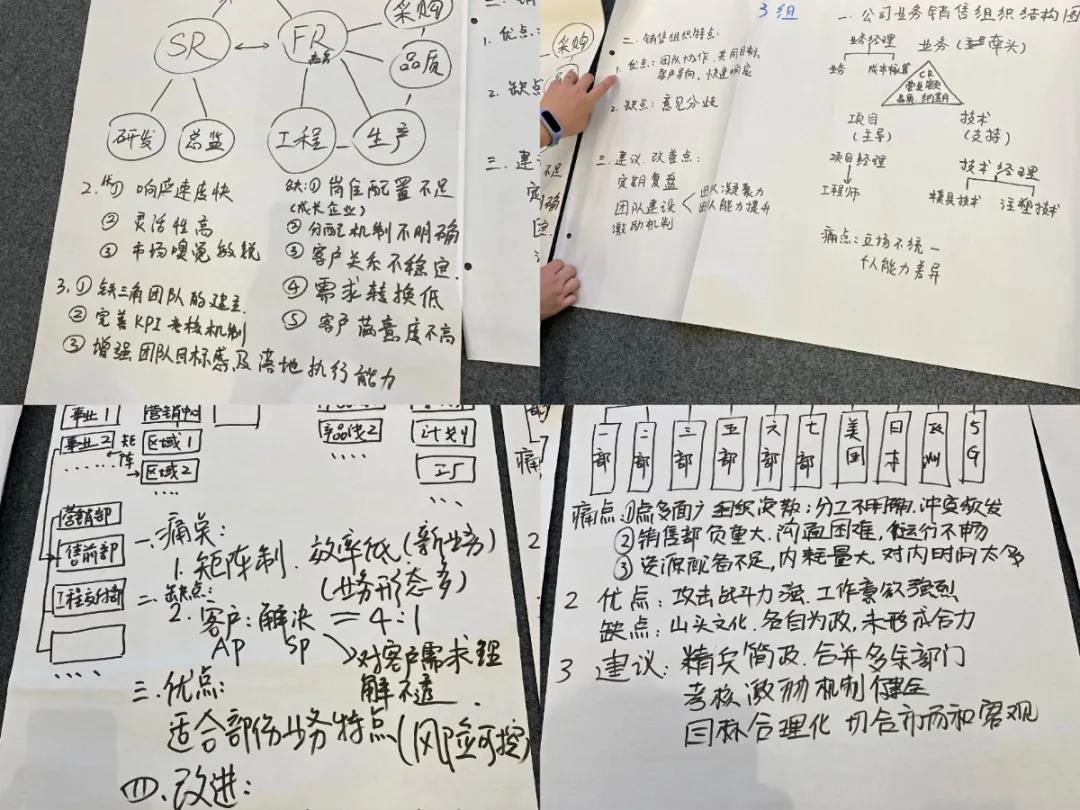 采购
SR
FR
品质
研发
总监
工程
生产
2. 优① 响应速度快
② 灵活性高
③ 市场嗅觉敏锐
缺:① 岗位配置不足
(成长企业)
② 分配机制不明确
③ 客户关系不稳定.
④ 需求转换低
⑤ 客户满意度不高
3. ① 铁三角团队的建立.
② 完善KPI考核机制
③ 增强团队目标感及落地执行能力
1. 优点:
2. 缺
三. 建
采购
二. 销售组织特点:
1. 优点: 团队协作. 共同目标
客户导向, 快速响应
2. 缺点: 意见分歧
三. 建议. 改善点:
定期复盘
团队建设
团队凝聚力
团队能力提升
激励机制
3组
一. 公司业务销售组织结构图
业务经理
业务 (牵头)
业务
成本核算
CR
项目
(主导)
技术
(支持)
项目经理
技术经理
工程师
模具技术
注塑技术
痛点: 立场不统一
个人能力差异
事业1
事业2
矩阵
营销中心
区域1
区域2
产品线2
计划
工厂
营销部
售前部
工程交付部
一. 痛点:
1. 矩阵制. 效率低 (新业务)
(业务形态多)
二. 缺点:
2. 客户: 解决 = 4:1
AP SP
对客户需求理
解不透.
三. 优点:
适合部份业务特点 (风险可控)
四. 改进:
一部
二部
三部
五部
六部
七部
美国
日本
欧洲
5G
痛点: ①点多面广 组织次数; 分工不明确. 冲突频发
② 销售部负重大. 沟通困难, 运行不畅
③ 资源配备不足, 内耗量大. 对内时间太多
2 优点: 攻击战斗力强. 工作意欲强烈
缺点: 山头文化. 各自为政, 未形成合力
3 建议: 精兵简政. 合并多余部门
考核激励机制健全
目标合理化 切合市场和客观